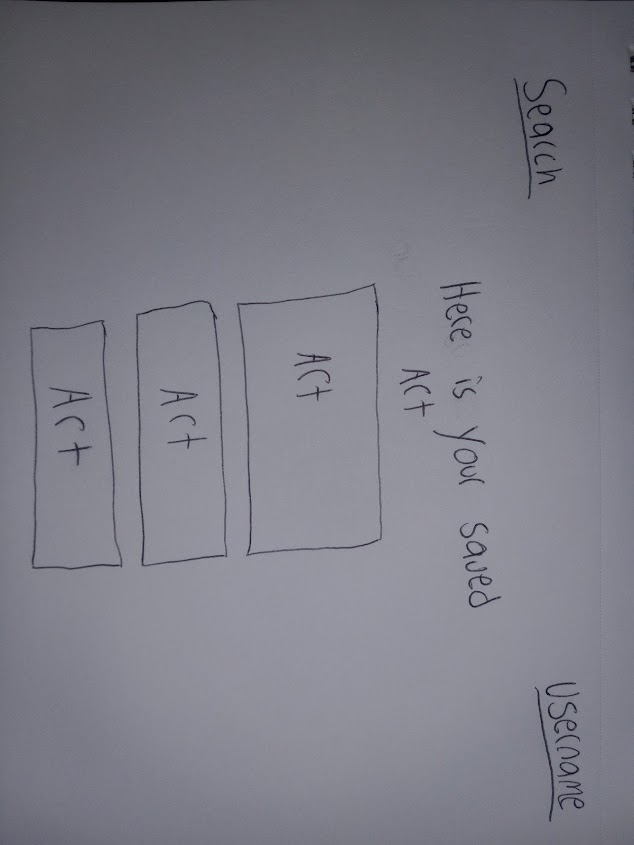 Search
Username
Here is your saved
Act
Act
Act
Act